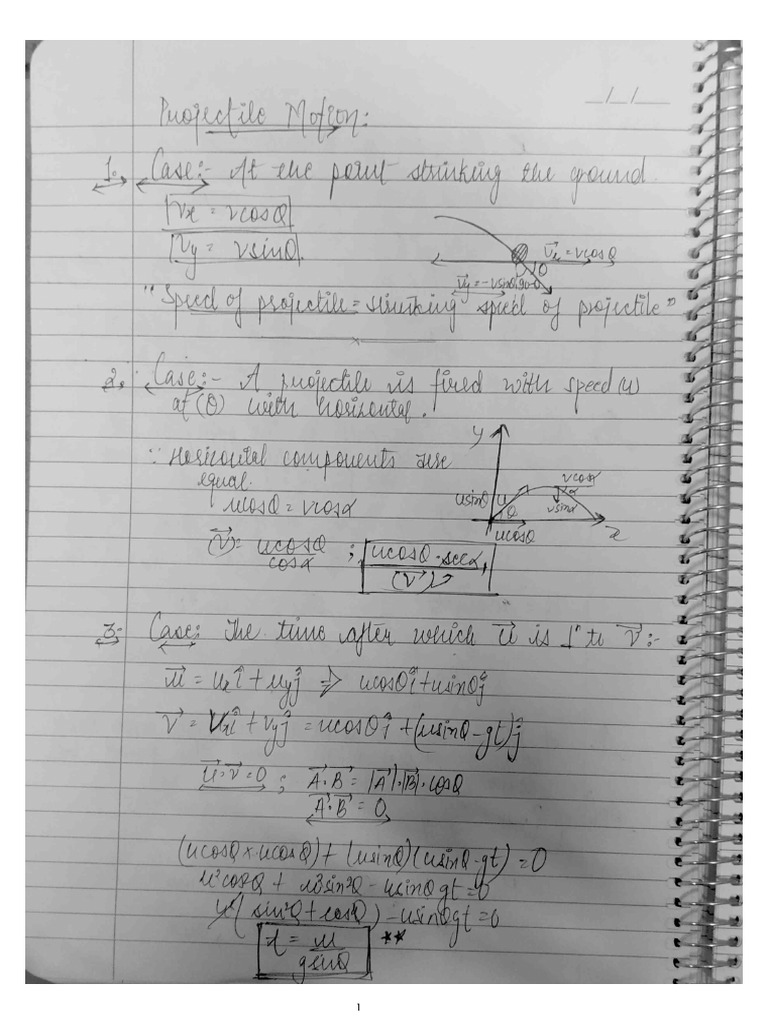 __/__/____
Projectile Motion:
1. Case:- At the point strinking the ground.
Vx = vcosθ
Vy = vsinθ
Vx = vcosθ
θ
Vy = -vsinθ 90-θ
"Speed of projectile = strinking speed of projectile"
x
2. Case:- A projectile is fired with speed (u)
at (θ) with horizontal.
∵ Horizontal components are
equal.
ucosθ = vcosα
y
usinθ u θ
vcosα
α
vsinα
ucosθ
x
(V⃗) = ucosθ/cosα ; ucosθ·secα
(V⃗)
3:- Case: The time after which u⃗ is ⊥r to v⃗:-
u⃗ = uxî + uyĵ ⇒ ucosθî + usinθĵ
v⃗ = Vxî + Vyĵ = ucosθî + (usinθ-gt)ĵ
u⃗·v⃗ = 0 ; A⃗·B⃗ = |A⃗|·|B⃗|·cosθ
A⃗·B⃗ = 0
(ucosθ × ucosθ) + (usinθ)(usinθ-gt) = 0
u²cos²θ + u²sin²θ - usinθgt = 0
u²(sin²θ + cos²θ) - usinθgt = 0
t = u/gsinθ **
1